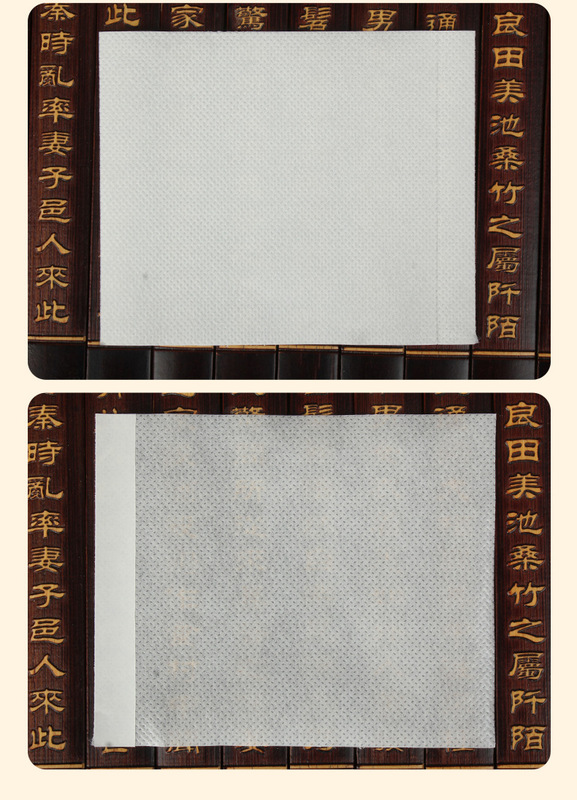 良田美池桑竹之屬阡陌
通
男
髫
驚
家
此
秦時亂率妻子邑人來此
良田美池桑竹之屬阡陌
秦時亂率妻子邑人來此